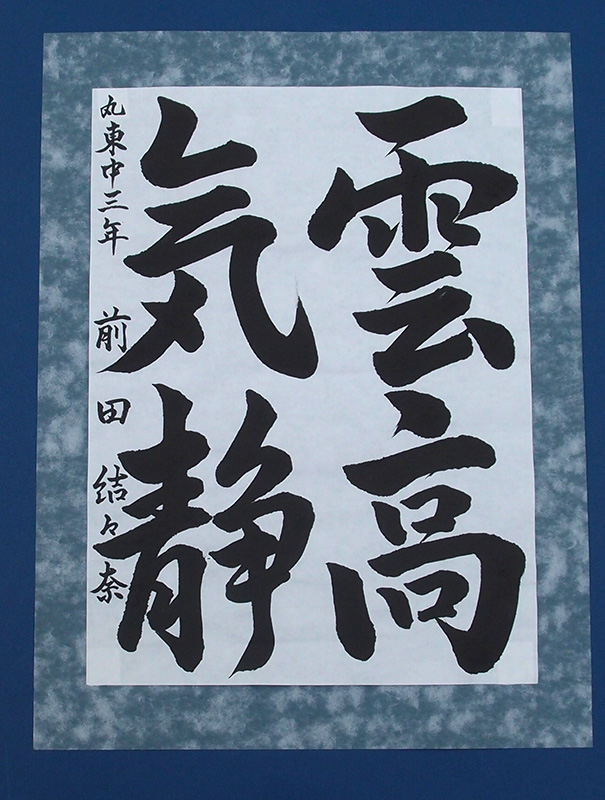 雲高
気静
丸東中三年 前田 結々奈